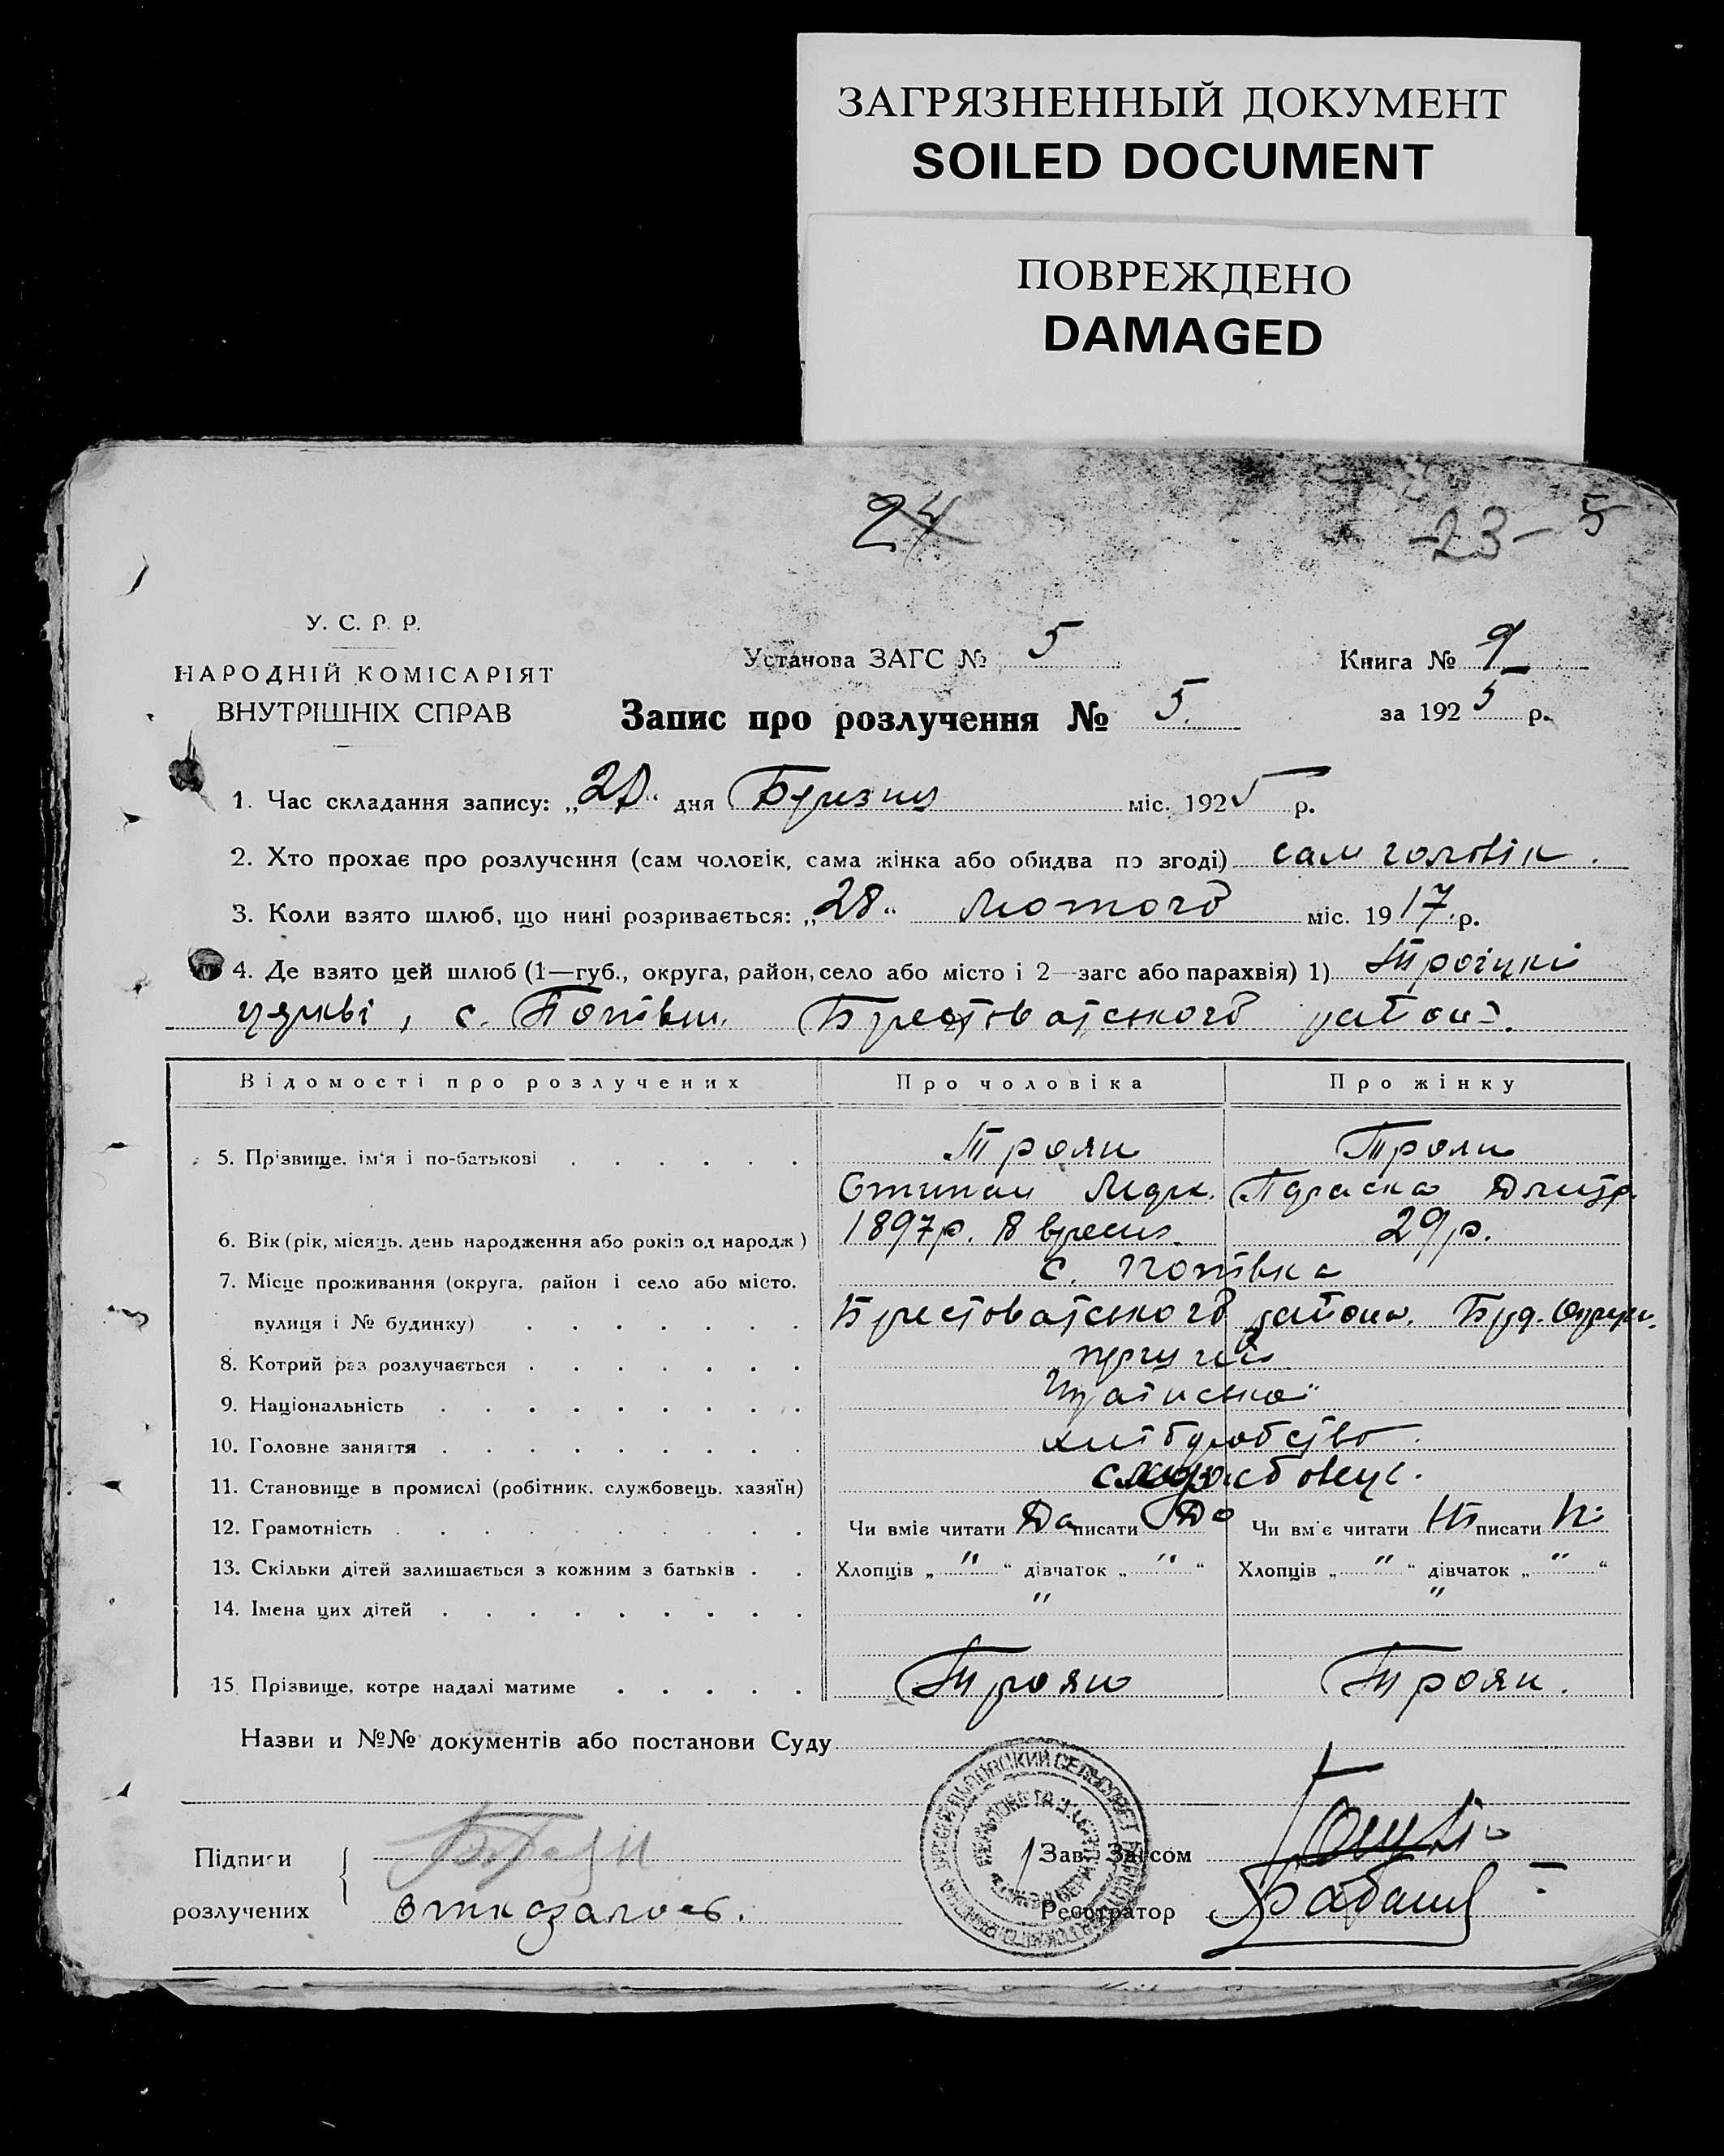 ЗАГРЯЗНЕННЫЙ ДОКУМЕНТ
SOILED DOCUMENT
ПОВРЕЖДЕНО
DAMAGED
24 -23- 5
У. С. Р. Р.
НАРОДНІЙ КОМІСАРІЯТ
ВНУТРІШНІХ СПРАВ
Установа ЗАГС № 5 Книга № 9
Запис про розлучення № 5. за 1925 р.
1. Час складання запису: „ “ дня Березня міс. 1925 р.
2. Хто прохає про розлучення (сам чоловік, сама жінка або обидва по згоді) сам чоловік.
3. Коли взято шлюб, що нині розривається: „28“ Лютого міс. 1917 р.
4. Де взято цей шлюб (1—губ., округа, район, село або місто і 2—загс або парахвія) 1) Троїцкі
церкві, с. Попівка Берестоватського района.
Відомості про розлучених Про чоловіка Про жінку
5. Прізвище, ім'я і по-батькові Троян Троян
Степан Марк. Параска Дмитр.
6. Вік (рік, місяць, день народження або років од народж) 1897р. 8 вересня 29р.
7. Місце проживання (округа, район і село або місто, с. Попівка
вулиця і № будинку) Берестоватського района.
8. Котрий раз розлучається перший
9. Національність
10. Головне заняття хліборобство.
11. Становище в промислі (робітник, службовець, хазяїн)
12. Грамотність Чи вміє читати Да писати Да Чи вміє читати Ні писати Ні
13. Скільки дітей залишається з кожним з батьків Хлопців „ " “ дівчаток „ " “ Хлопців „ " “ дівчаток „ " “
14. Імена цих дітей " "
15. Прізвище, котре надалі матиме Троян Троян.
Назви и №№ документів або постанови Суду
Підписи Зав. Загсом
розлучених отказалась. Реєстратор